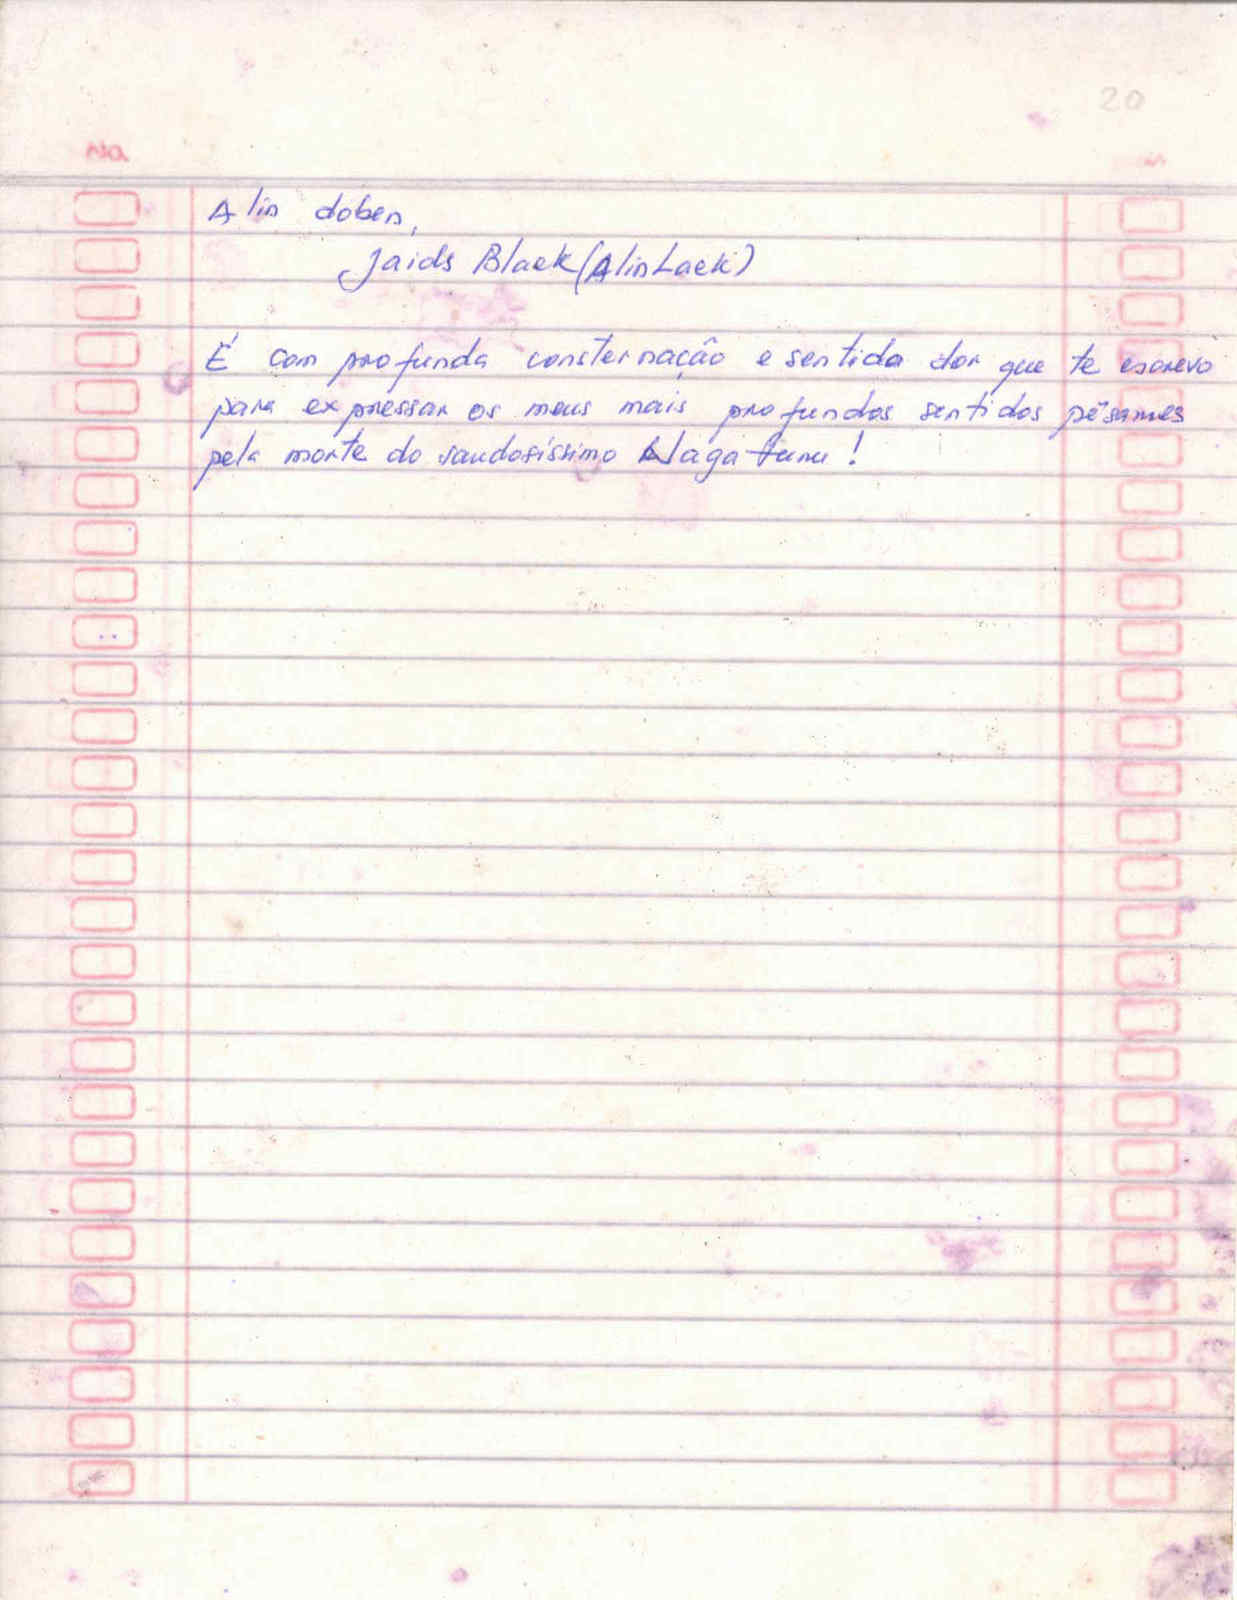 20
No
Alin doben,
Jaids Black (Alin Laek)
É com profunda consternação e sentida dor que te escrevo
para expressar os meus mais profundos sentidos pêsames
pela morte do saudosíssimo Naga